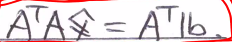 AᵀAx̂ = Aᵀb.